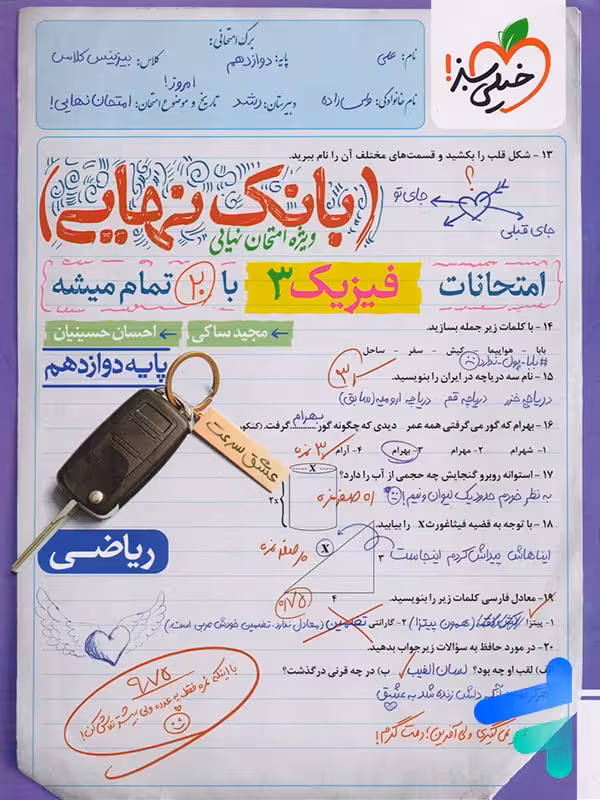 برگ امتحانی:
نام: علمی
پایه: دوازدهم
کلاس: بیزینس کلاس
امروز!
نام خانوادگی:
دبیرستان: رشد
تاریخ و موضوع امتحان: امتحان نهایی!
خیلی سبز!
۱۳ - شکل قلب را بکشید و قسمت‌های مختلف آن را نام ببرید.
(بانک نهایی)
ویژه امتحان نهایی
؟
جای تو
جای قبلی
امتحانات فیزیک ۳ با ۲۰ تمام میشه
مجید ساکی
احسان حسینیان
پایه دوازدهم
۱۴ - با کلمات زیر جمله بسازید.
بابا - هواپیما - کیش - سفر - ساحل
#بابا-پول-ندارد
۱۵ - نام سه دریاچه در ایران را بنویسید.
دریاچه خزر دریاچه قم دریاچه ارومیه (سابق)
۱۶ - بهرام که گور می‌گرفتی همه عمر دیدی که چگونه گور بهرام گرفت. (کنکور
۱- شهرام ۲- مهرام ۳- بهرام ۴- آرام
۳ نمره
عشق سرعت
۱۷ - استوانه روبرو گنجایش چه حجمی از آب را دارد؟
X
۲x
به نظر خودم حدود یک لیوان و نیم!
۱۸ - با توجه به قضیه فیثاغورث X را بیابید.
X
۳
۴
ایناهاش پیداش کردم اینجاست
ریاضی
۱۹- معادل فارسی کلمات زیر را بنویسید.
۱- پیتزا (همون پیتزا) ۲- گارانتی تضمین (معادل ندارد. تضمین خودش عربی است.)
۲۰- در مورد حافظ به سؤالات زیر جواب بدهید.
الف) لقب او چه بود؟ لسان الغیب ب) در چه قرنی درگذشت؟
دلش زنده شد به عشق
۹٫۷۵
ولی آفرین؛ دمت گرم!